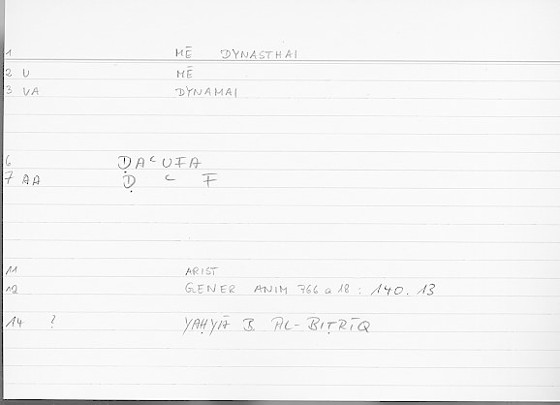 1 MĒ DYNASTHAI
2 U MĒ
3 VA DYNAMAI
6 ḌAʿUFA
7 AA Ḍ ʿ F
11 ARIST
12 GENER ANIM 766 a 18 : 140.13
14 ? YAḤYĀ B AL-BIṬRĪQ